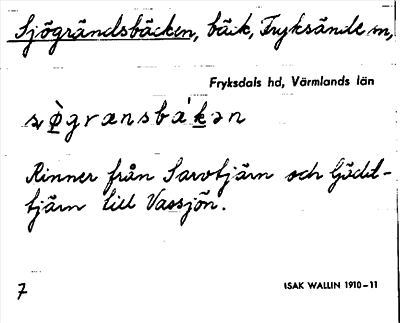 Sjögrändsbäcken, bäck, Fryksände sn,
Fryksdals hd, Värmlands län
Rinner från Sarvtjärn och Gädd-
tjärn till Vassjön.
7
ISAK WALLIN 1910–11